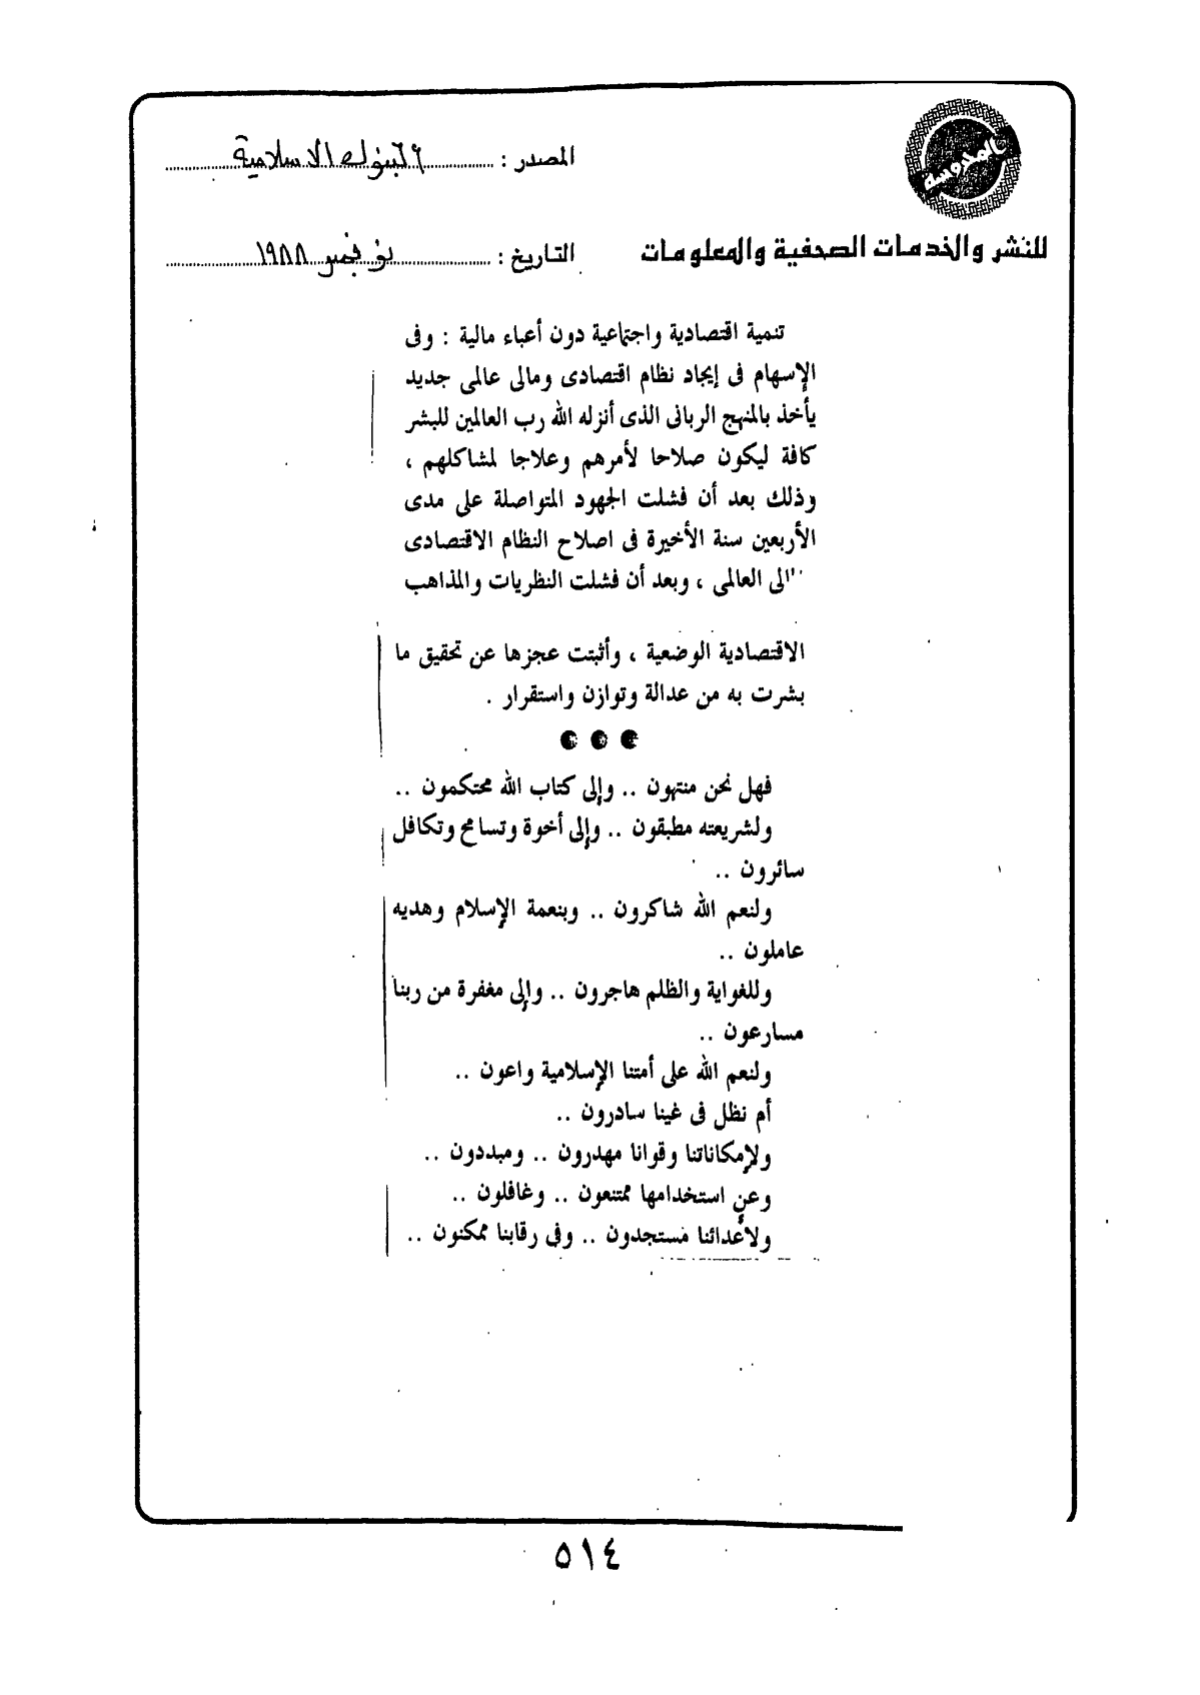 المحروسة
للنشر والخدمات الصحفية والمعلومات
المصدر : البنوك الاسلامية
التاريخ : نوفمبر ١٩٨٨
تنمية اقتصادية واجتماعية دون أعباء مالية : وفى
الإسهام فى إيجاد نظام اقتصادى ومالى عالمى جديد
يأخذ بالمنهج الربانى الذى أنزله الله رب العالمين للبشر
كافة ليكون صلاحا لأمرهم وعلاجا لمشاكلهم ،
وذلك بعد أن فشلت الجهود المتواصلة على مدى
الأربعين سنة الأخيرة فى اصلاح النظام الاقتصادى
العالمى ، وبعد أن فشلت النظريات والمذاهب
الاقتصادية الوضعية ، وأثبتت عجزها عن تحقيق ما
بشرت به من عدالة وتوازن واستقرار .
فهل نحن منتهون .. وإلى كتاب الله محتكمون ..
ولشريعته مطبقون .. وإلى أخوة وتسامح وتكافل
سائرون ..
ولنعم الله شاكرون .. وبنعمة الإسلام وهديه
عاملون ..
وللغواية والظلم هاجرون .. وإلى مغفرة من ربنا
مسارعون ..
ولنعم الله على أمتنا الإسلامية واعون ..
أم نظل فى غينا سادرون ..
ولإمكاناتنا وقوانا مهدرون .. ومبددون ..
وعن استخدامها ممتنعون .. وغافلون ..
ولأعدائنا مستجدون .. وفى رقابنا ممكنون ..
٥١٤